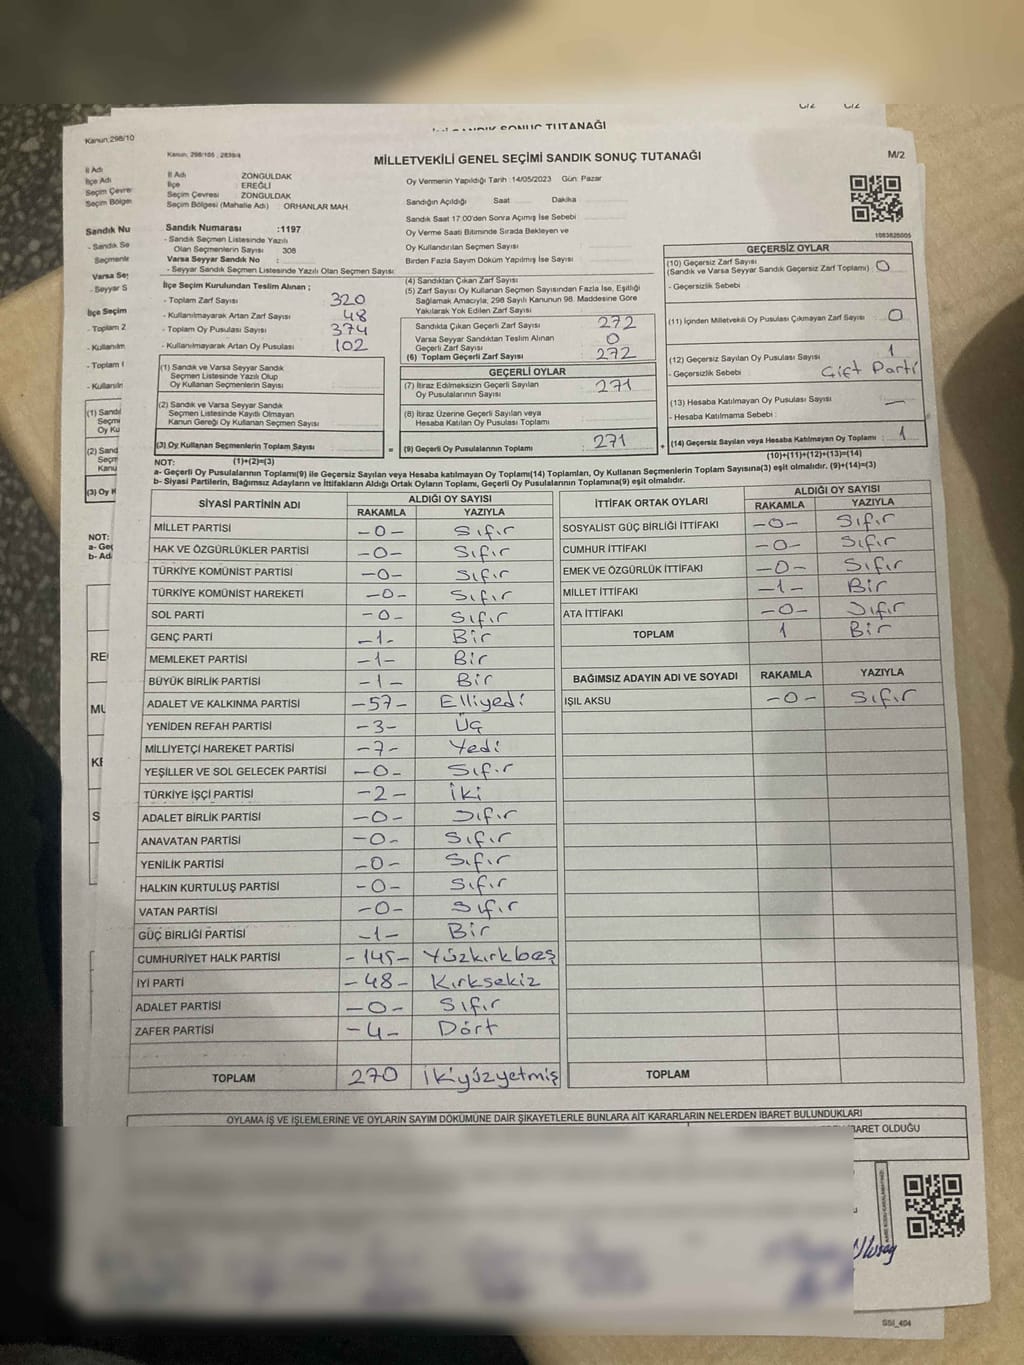 SANDIK SONUÇ TUTANAĞI
Kanun, 298/10
Kanun, 298/105 , 2839/4
MİLLETVEKİLİ GENEL SEÇİMİ SANDIK SONUÇ TUTANAĞI
M/2
İl Adı
İlçe Adı
Seçim Çevre
Seçim Bölge
İl Adı ZONGULDAK
İlçe : EREĞLİ
Seçim Çevresi ZONGULDAK
Seçim Bölgesi (Mahalle Adı) ORHANLAR MAH.
Oy Vermenin Yapıldığı Tarih :14/05/2023 Gün: Pazar
Sandığın Açıldığı Saat Dakika
Sandık Saat 17:00'den Sonra Açımış İse Sebebi
Oy Verme Saati Bitiminde Sırada Bekleyen ve
Oy Kullandırılan Seçmen Sayısı
Birden Fazla Sayım Döküm Yapılmış İse Sayısı
Sandık Nu
Sandık Numarası :1197
- Sandık Seçmen Listesinde Yazılı
Olan Seçmenlerin Sayısı 308
Varsa Seyyar Sandık No :
- Seyyar Sandık Seçmen Listesinde Yazılı Olan Seçmen Sayısı
İlçe Seçim Kurulundan Teslim Alınan ;
- Toplam Zarf Sayısı 320
- Kullanılmayarak Artan Zarf Sayısı 48
- Toplam Oy Pusulası Sayısı 374
- Kullanılmayarak Artan Oy Pusulası 102
(1) Sandık ve Varsa Seyyar Sandık
Seçmen Listesinde Yazılı Olup
Oy Kullanan Seçmenlerin Sayısı
(2) Sandık ve Varsa Seyyar Sandık
Seçmen Listesinde Kayıtlı Olmayan
Kanun Gereği Oy Kullanan Seçmen Sayısı
(3) Oy Kullanan Seçmenlerin Toplam Sayısı
(1)+(2)=(3)
(4) Sandıktan Çıkan Zarf Sayısı
(5) Zarf Sayısı Oy Kullanan Seçmen Sayısından Fazla İse, Eşitliği
Sağlamak Amacıyla, 298 Sayılı Kanunun 98. Maddesine Göre
Yakılarak Yok Edilen Zarf Sayısı
Sandıkta Çıkan Geçerli Zarf Sayısı 272
Varsa Seyyar Sandıktan Teslim Alınan
Geçerli Zarf Sayısı 0
(6) Toplam Geçerli Zarf Sayısı 272
GEÇERLİ OYLAR
(7) İtiraz Edilmeksizin Geçerli Sayılan
Oy Pusulalarının Sayısı 271
(8) İtiraz Üzerine Geçerli Sayılan veya
Hesaba Katılan Oy Pusulası Toplamı
= (9) Geçerli Oy Pusulalarının Toplamı 271 +
1083826005
GEÇERSİZ OYLAR
(10) Geçersiz Zarf Sayısı
(Sandık ve Varsa Seyyar Sandık Geçersiz Zarf Toplamı) 0
- Geçersizlik Sebebi
(11) İçinden Milletvekili Oy Pusulası Çıkmayan Zarf Sayısı 0
(12) Geçersiz Sayılan Oy Pusulası Sayısı 1
- Geçersizlik Sebebi : Çift Parti
(13) Hesaba Katılmayan Oy Pusulası Sayısı —
- Hesaba Katılmama Sebebi :
(14) Geçersiz Sayılan veya Hesaba Katılmayan Oy Toplamı : 1
(10)+(11)+(12)+(13)=(14)
NOT:
a- Geçerli Oy Pusulalarının Toplamı(9) ile Geçersiz Sayılan veya Hesaba katılmayan Oy Toplamı(14) Toplamları, Oy Kullanan Seçmenlerin Toplam Sayısına(3) eşit olmalıdır. (9)+(14)=(3)
b- Siyasi Partilerin, Bağımsız Adayların ve İttifakların Aldığı Ortak Oyların Toplamı, Geçerli Oy Pusulalarının Toplamına(9) eşit olmalıdır.
SİYASİ PARTİNİN ADI ALDIĞI OY SAYISI
RAKAMLA YAZIYLA
MİLLET PARTİSİ -0- Sıfır
HAK VE ÖZGÜRLÜKLER PARTİSİ -0- Sıfır
TÜRKİYE KOMÜNİST PARTİSİ -0- Sıfır
TÜRKİYE KOMÜNİST HAREKETİ -0- Sıfır
SOL PARTİ -0- Sıfır
GENÇ PARTİ -1- Bir
MEMLEKET PARTİSİ -1- Bir
BÜYÜK BİRLİK PARTİSİ -1- Bir
ADALET VE KALKINMA PARTİSİ -57- Elliyedi
YENİDEN REFAH PARTİSİ -3- Üç
MİLLİYETÇİ HAREKET PARTİSİ -7- Yedi
YEŞİLLER VE SOL GELECEK PARTİSİ -0- Sıfır
TÜRKİYE İŞÇİ PARTİSİ -2- İki
ADALET BİRLİK PARTİSİ -0- Sıfır
ANAVATAN PARTİSİ -0- Sıfır
YENİLİK PARTİSİ -0- Sıfır
HALKIN KURTULUŞ PARTİSİ -0- Sıfır
VATAN PARTİSİ -0- Sıfır
GÜÇ BİRLİĞİ PARTİSİ -1- Bir
CUMHURİYET HALK PARTİSİ -145- Yüzkırkbeş
İYİ PARTİ -48- Kırksekiz
ADALET PARTİSİ -0- Sıfır
ZAFER PARTİSİ -4- Dört
TOPLAM 270 İkiyüzyetmiş
İTTİFAK ORTAK OYLARI ALDIĞI OY SAYISI
RAKAMLA YAZIYLA
SOSYALİST GÜÇ BİRLİĞİ İTTİFAKI -0- Sıfır
CUMHUR İTTİFAKI -0- Sıfır
EMEK VE ÖZGÜRLÜK İTTİFAKI -0- Sıfır
MİLLET İTTİFAKI -1- Bir
ATA İTTİFAKI -0- Sıfır
TOPLAM 1 Bir
BAĞIMSIZ ADAYIN ADI VE SOYADI RAKAMLA YAZIYLA
IŞIL AKSU -0- Sıfır
TOPLAM
OYLAMA İŞ VE İŞLEMLERİNE VE OYLARIN SAYIM DÖKÜMÜNE DAİR ŞİKAYETLERLE BUNLARA AİT KARARLARIN NELERDEN İBARET BULUNDUKLARI
BARET OLDUĞU
SSI_404